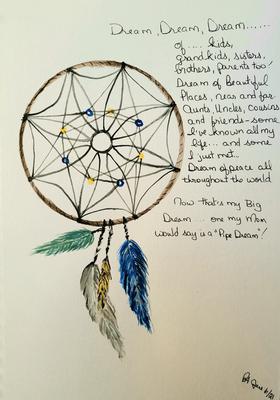 Dream, Dream, Dream......
of .... kids,
grandkids, sisters,
brothers, parents too!
Dream of Beautiful
Places, near and far
Aunts, Uncles, cousins
and friends - some
I've known all my
life... and some
I just met...
Dream of peace all
throughout the world
Now that's my Big
Dream .... one my Mom
would say is a "Pipe Dream"!